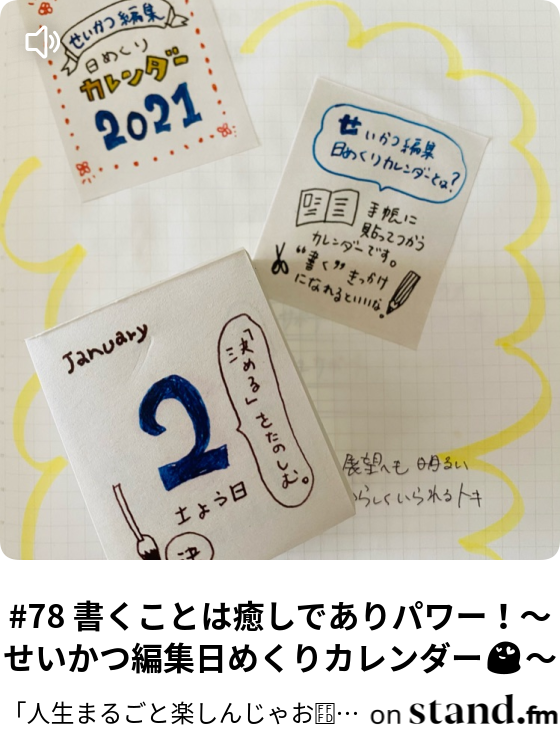 せいかつ編集
日めくり
カレンダー
2021
せいかつ編集
日めくりカレンダーとは?
手帳に
貼ってつかう
カレンダーです。
"書く"きっかけ
になれるといいな
January
2
土よう日
「決める」をたのしむ。
決
展望へも 明るい
らしくいられるトキ
#78 書くことは癒しでありパワー!〜
せいかつ編集日めくりカレンダー〜
「人生まるごと楽しんじゃお… on stand.fm